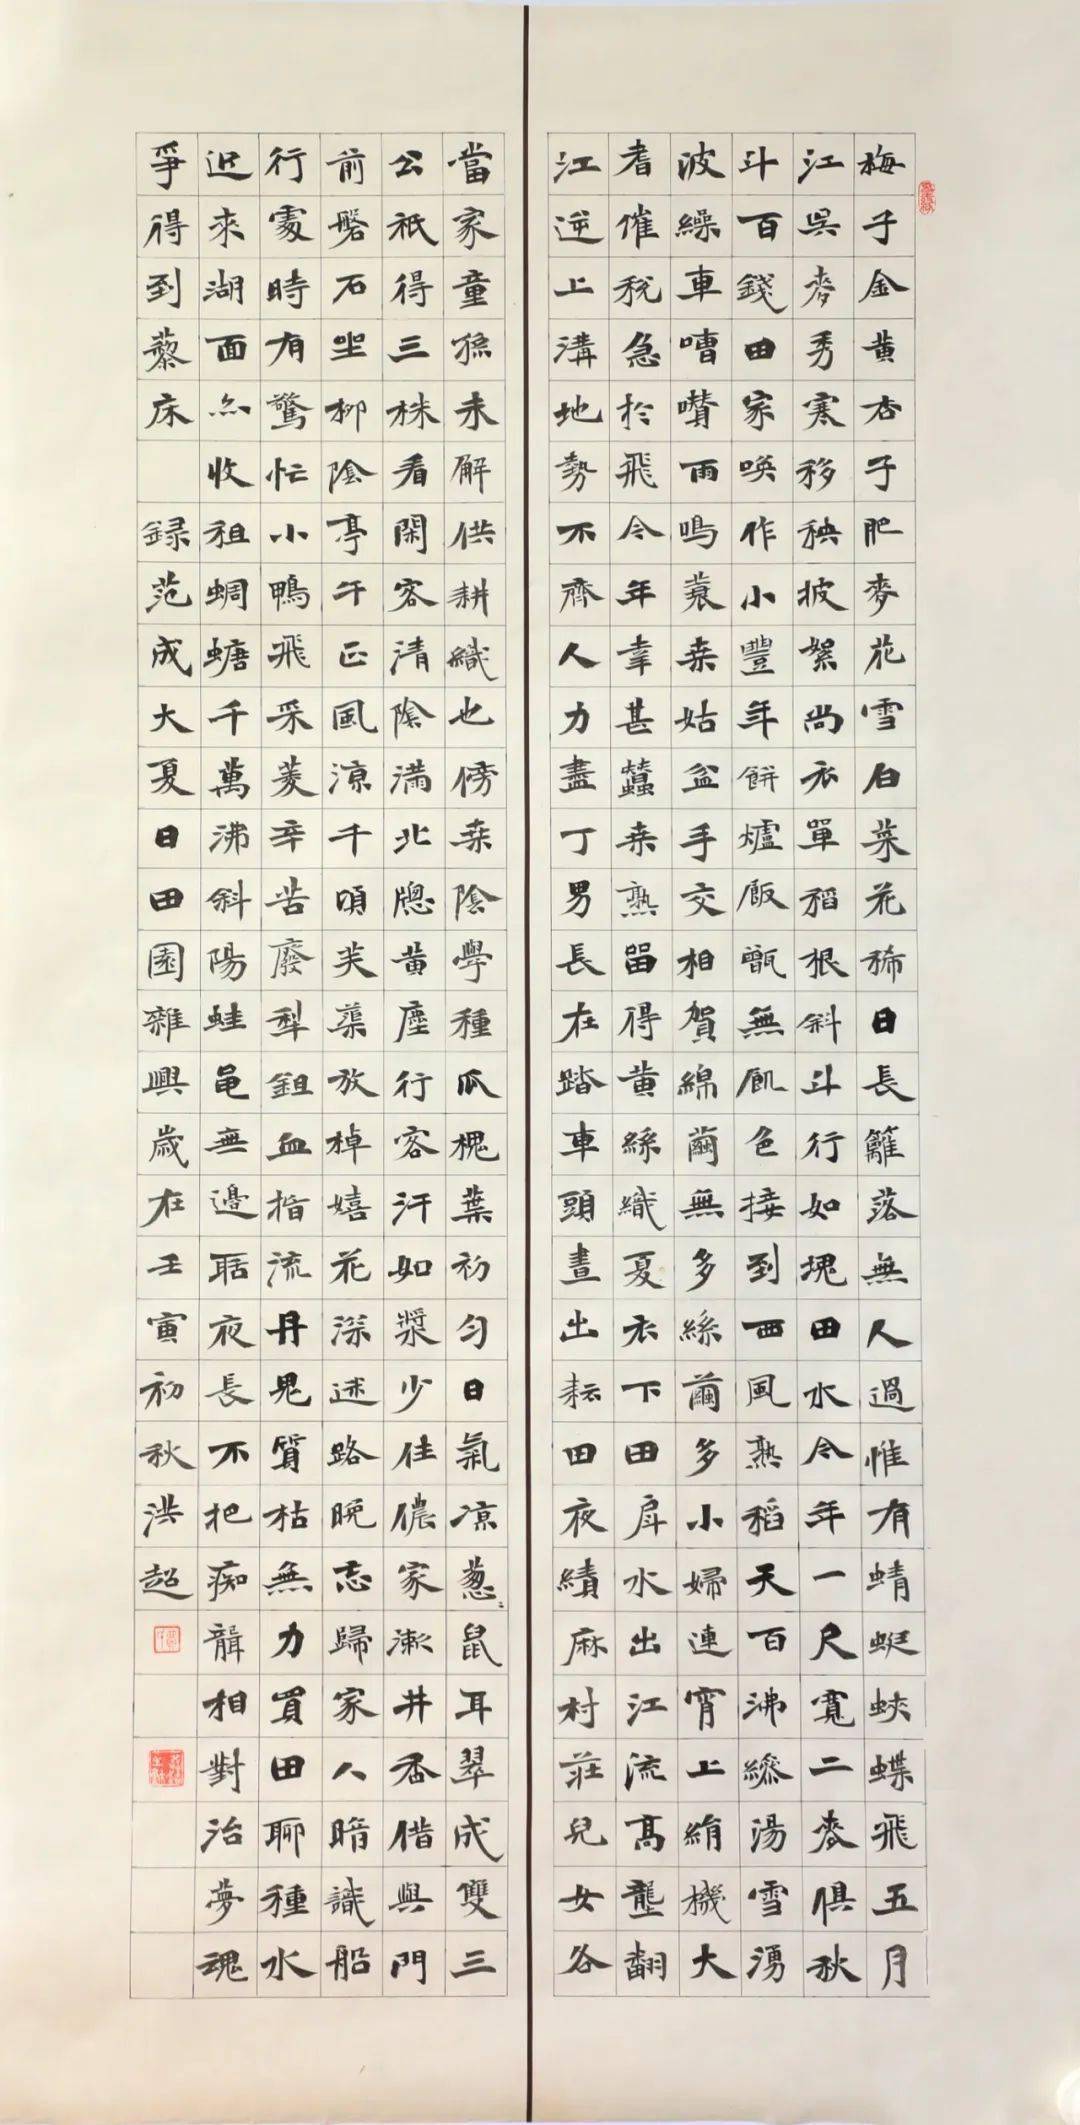 梅子金黄杏子肥麥花雪白菜花稀日長籬落無人過惟有蜻蜓蛺蝶飛五月
江吳麥秀寒移秧披絮尚衣單稻根斜斗行如塊田水今年一尺寬二麥俱秋
斗百錢田家喚作小豐年餅爐飯甑無飢色接到西風熟稻天百沸繰湯雪湧
波繰車嘈囋雨鳴蓑桑姑盆手交相賀綿繭無多絲繭多小婦連宵上絹機大
耆催稅急於飛今年幸甚蠶桑熟留得黄絲織夏衣下田戽水出江流高壟翻
江逆上溝地勢不齊人力盡丁男長在踏車頭晝出耘田夜績麻村莊兒女各
當家童孫未解供耕織也傍桑陰學種瓜槐葉初勻日氣涼蔥〻鼠耳翠成雙三
公衹得三株看閑客清陰滿北牕黄塵行客汗如漿少住儂家漱井香借與門
前磐石坐柳陰亭午正風涼千頃芙蕖放棹嬉花深迷路晚忘歸家人暗識船
行處時有驚忙小鴨飛采菱辛苦廢犁鉏血指流丹鬼質枯無力買田聊種水
近來湖面亦收租蜩螗千萬沸斜陽蛙黽無邊聒夜長不把痴聾相對治夢魂
爭得到藜床 録范成大夏日田園雜興歲在壬寅初秋洪超